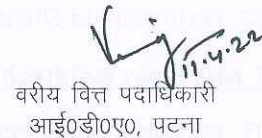 11.4.22
वरीय वित्त पदाधिकारी
आई0डी0ए0, पटना